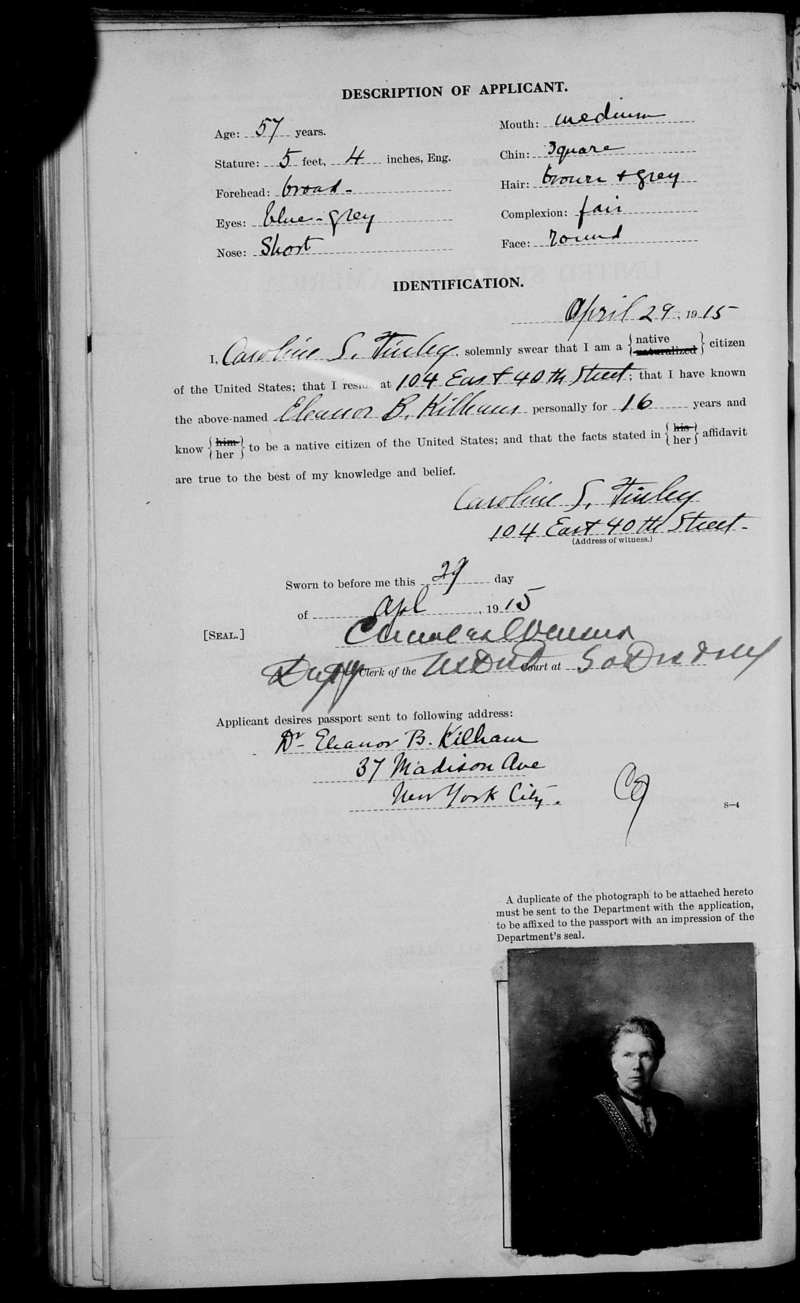 DESCRIPTION OF APPLICANT.
Age: 57 years.
Mouth: medium
Stature: 5 feet, 4 inches, Eng.
Chin: Square
Forehead: broad-
Hair: brown & grey
Eyes: blue-grey
Complexion: fair
Nose: Short
Face: round
IDENTIFICATION.
April 29, 1915
I, Caroline S. Finley, solemnly swear that I am a { native naturalized } citizen
of the United States; that I resi at 104 East 40th Street; that I have known
the above-named Eleanor B. Kilham personally for 16 years and
know { him her } to be a native citizen of the United States; and that the facts stated in { his her } affidavit
are true to the best of my knowledge and belief.
Caroline S. Finley
104 East 40th Street-
(Address of witness.)
Sworn to before me this 29 day
of Apl, 1915
[SEAL.]
Clerk of the US Dist Court at So Dis
Applicant desires passport sent to following address:
Dr Eleanor B. Kilham
37 Madison Ave
New York City.
8—4
A duplicate of the photograph to be attached hereto
must be sent to the Department with the application,
to be affixed to the passport with an impression of the
Department's seal.